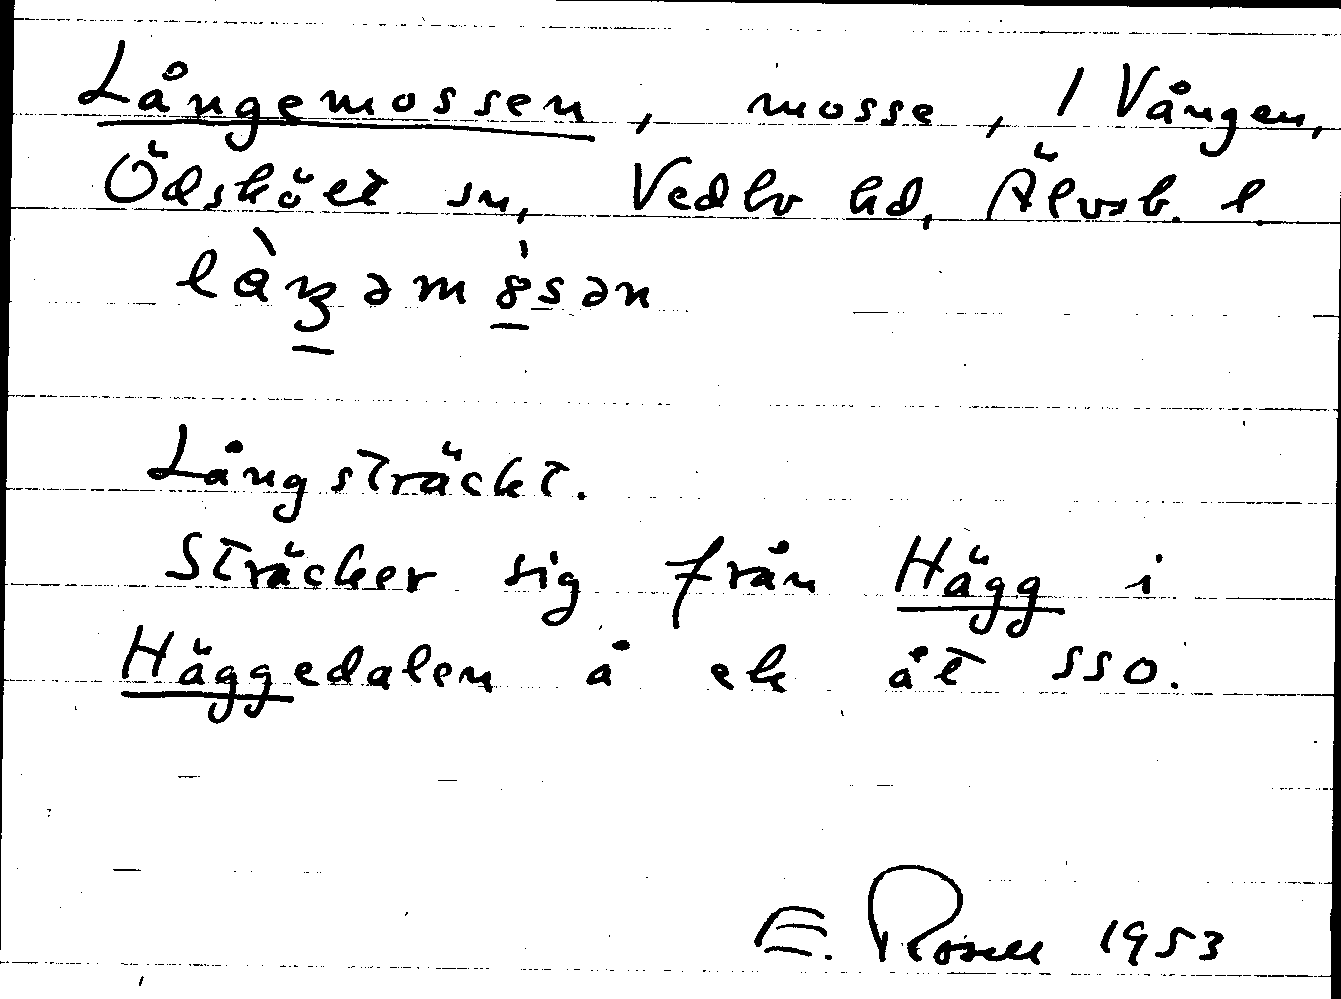 Långemossen, mosse, 1 Vången,
Ödskölt sn, Vedbo hd, Älvsb. l.
làŋəmò̱sən
Långsträckt.
Sträcker sig från Hägg i
Häggedalen å ek åt SSO.
E. Rosell 1953